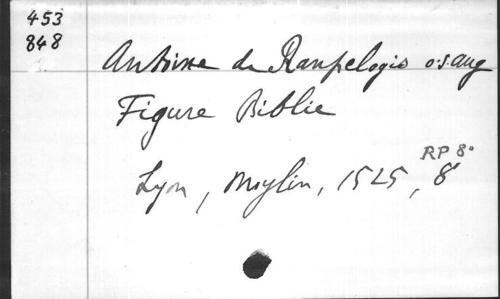 453
848
Antoine de Rampelogis o.s. Aug
Figure Biblie
RP 8°
Lyon, Moylin, 1525, 8°